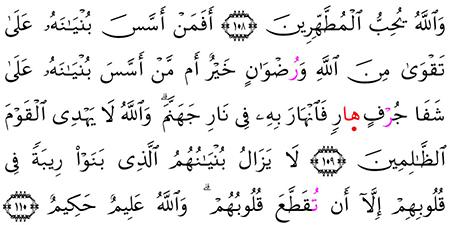 وَٱللَّهُ يُحِبُّ ٱلْمُطَّهِّرِينَ ١٠٨ أَفَمَنْ أَسَّسَ بُنْيَٰنَهُۥ عَلَىٰ
تَقْوَىٰ مِنَ ٱللَّهِ وَرُضْوَٰنٍ خَيْرٌ أَم مَّنْ أَسَّسَ بُنْيَٰنَهُۥ عَلَىٰ
شَفَا جُرْفٍ هارٍ فَٱنْهَارَ بِهِۦ فِى نَارِ جَهَنَّمَ ۗ وَٱللَّهُ لَا يَهْدِى ٱلْقَوْمَ
ٱلظَّٰلِمِينَ ١٠٩ لَا يَزَالُ بُنْيَٰنُهُمُ ٱلَّذِى بَنَوْا رِيبَةً فِى
قُلُوبِهِمْ إِلَّآ أَن تُقَطَّعَ قُلُوبُهُمْ ۗ وَٱللَّهُ عَلِيمٌ حَكِيمٌ ١١٠